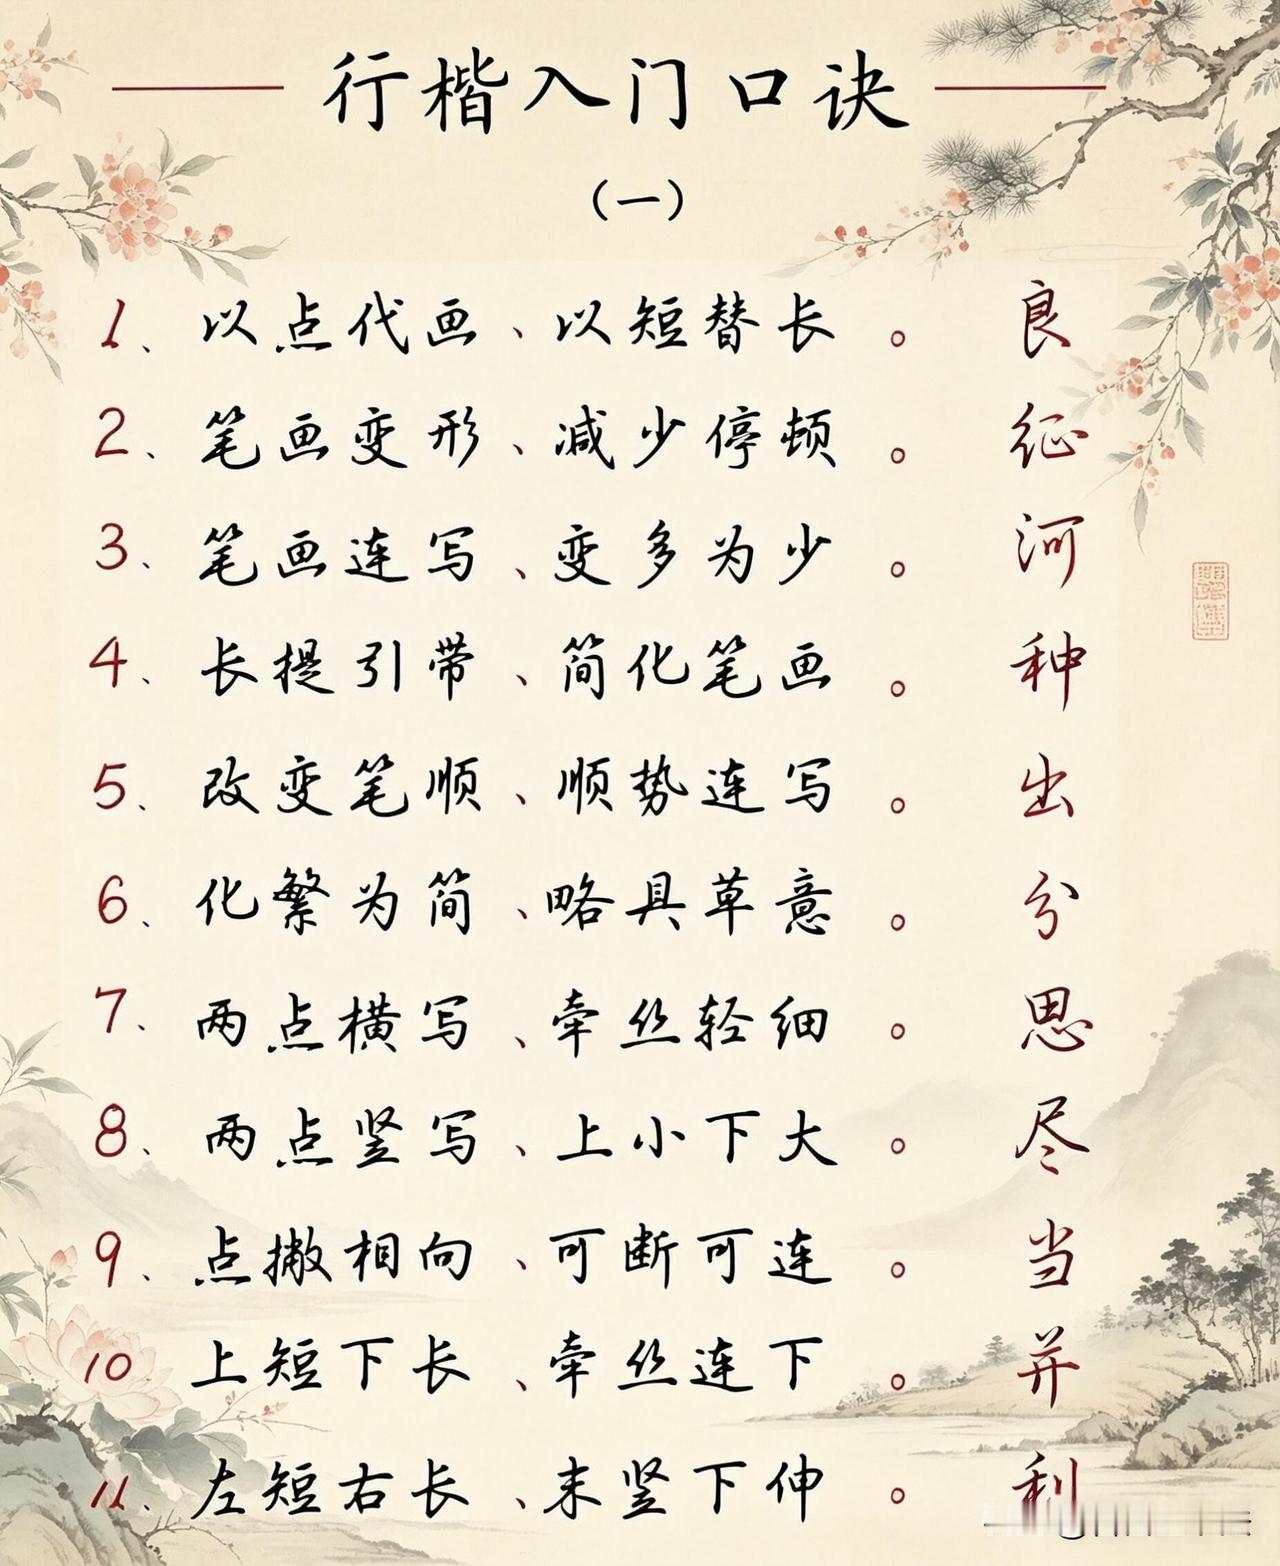 行楷入门口诀
（一）
1、以点代画、以短替长。 良
2、笔画变形、减少停顿。 征
3、笔画连写、变多为少。 河
4、长提引带、简化笔画。 种
5、改变笔顺、顺势连写。 出
6、化繁为简、略具草意。 分
7、两点横写、牵丝轻细。 思
8、两点竖写、上小下大。 尽
9、点撇相向、可断可连。 当
10 上短下长、牵丝连下。 并
11、左短右长、末竖下伸。 利